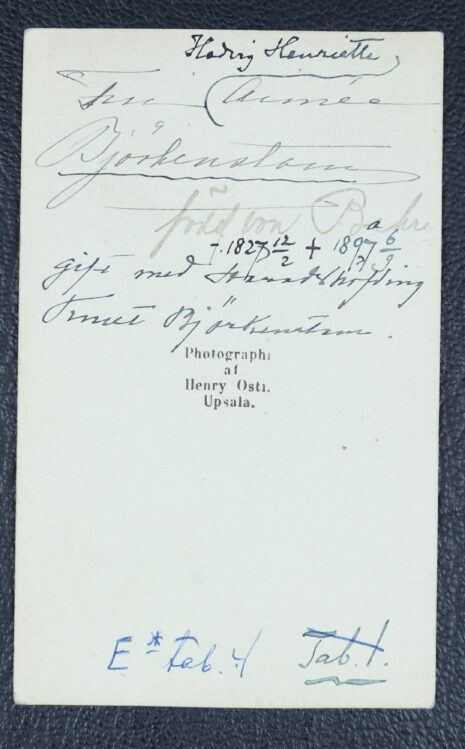 Hedvig Henriette
Fru Aimée
Björkenstam
född von Bahr
f. 1827 12/2 + 1897 6/9
gift med
Ernst Björkenstam.
Photographi
af
Henry Osti.
Upsala.
E* tab. 4 Tab. 1.